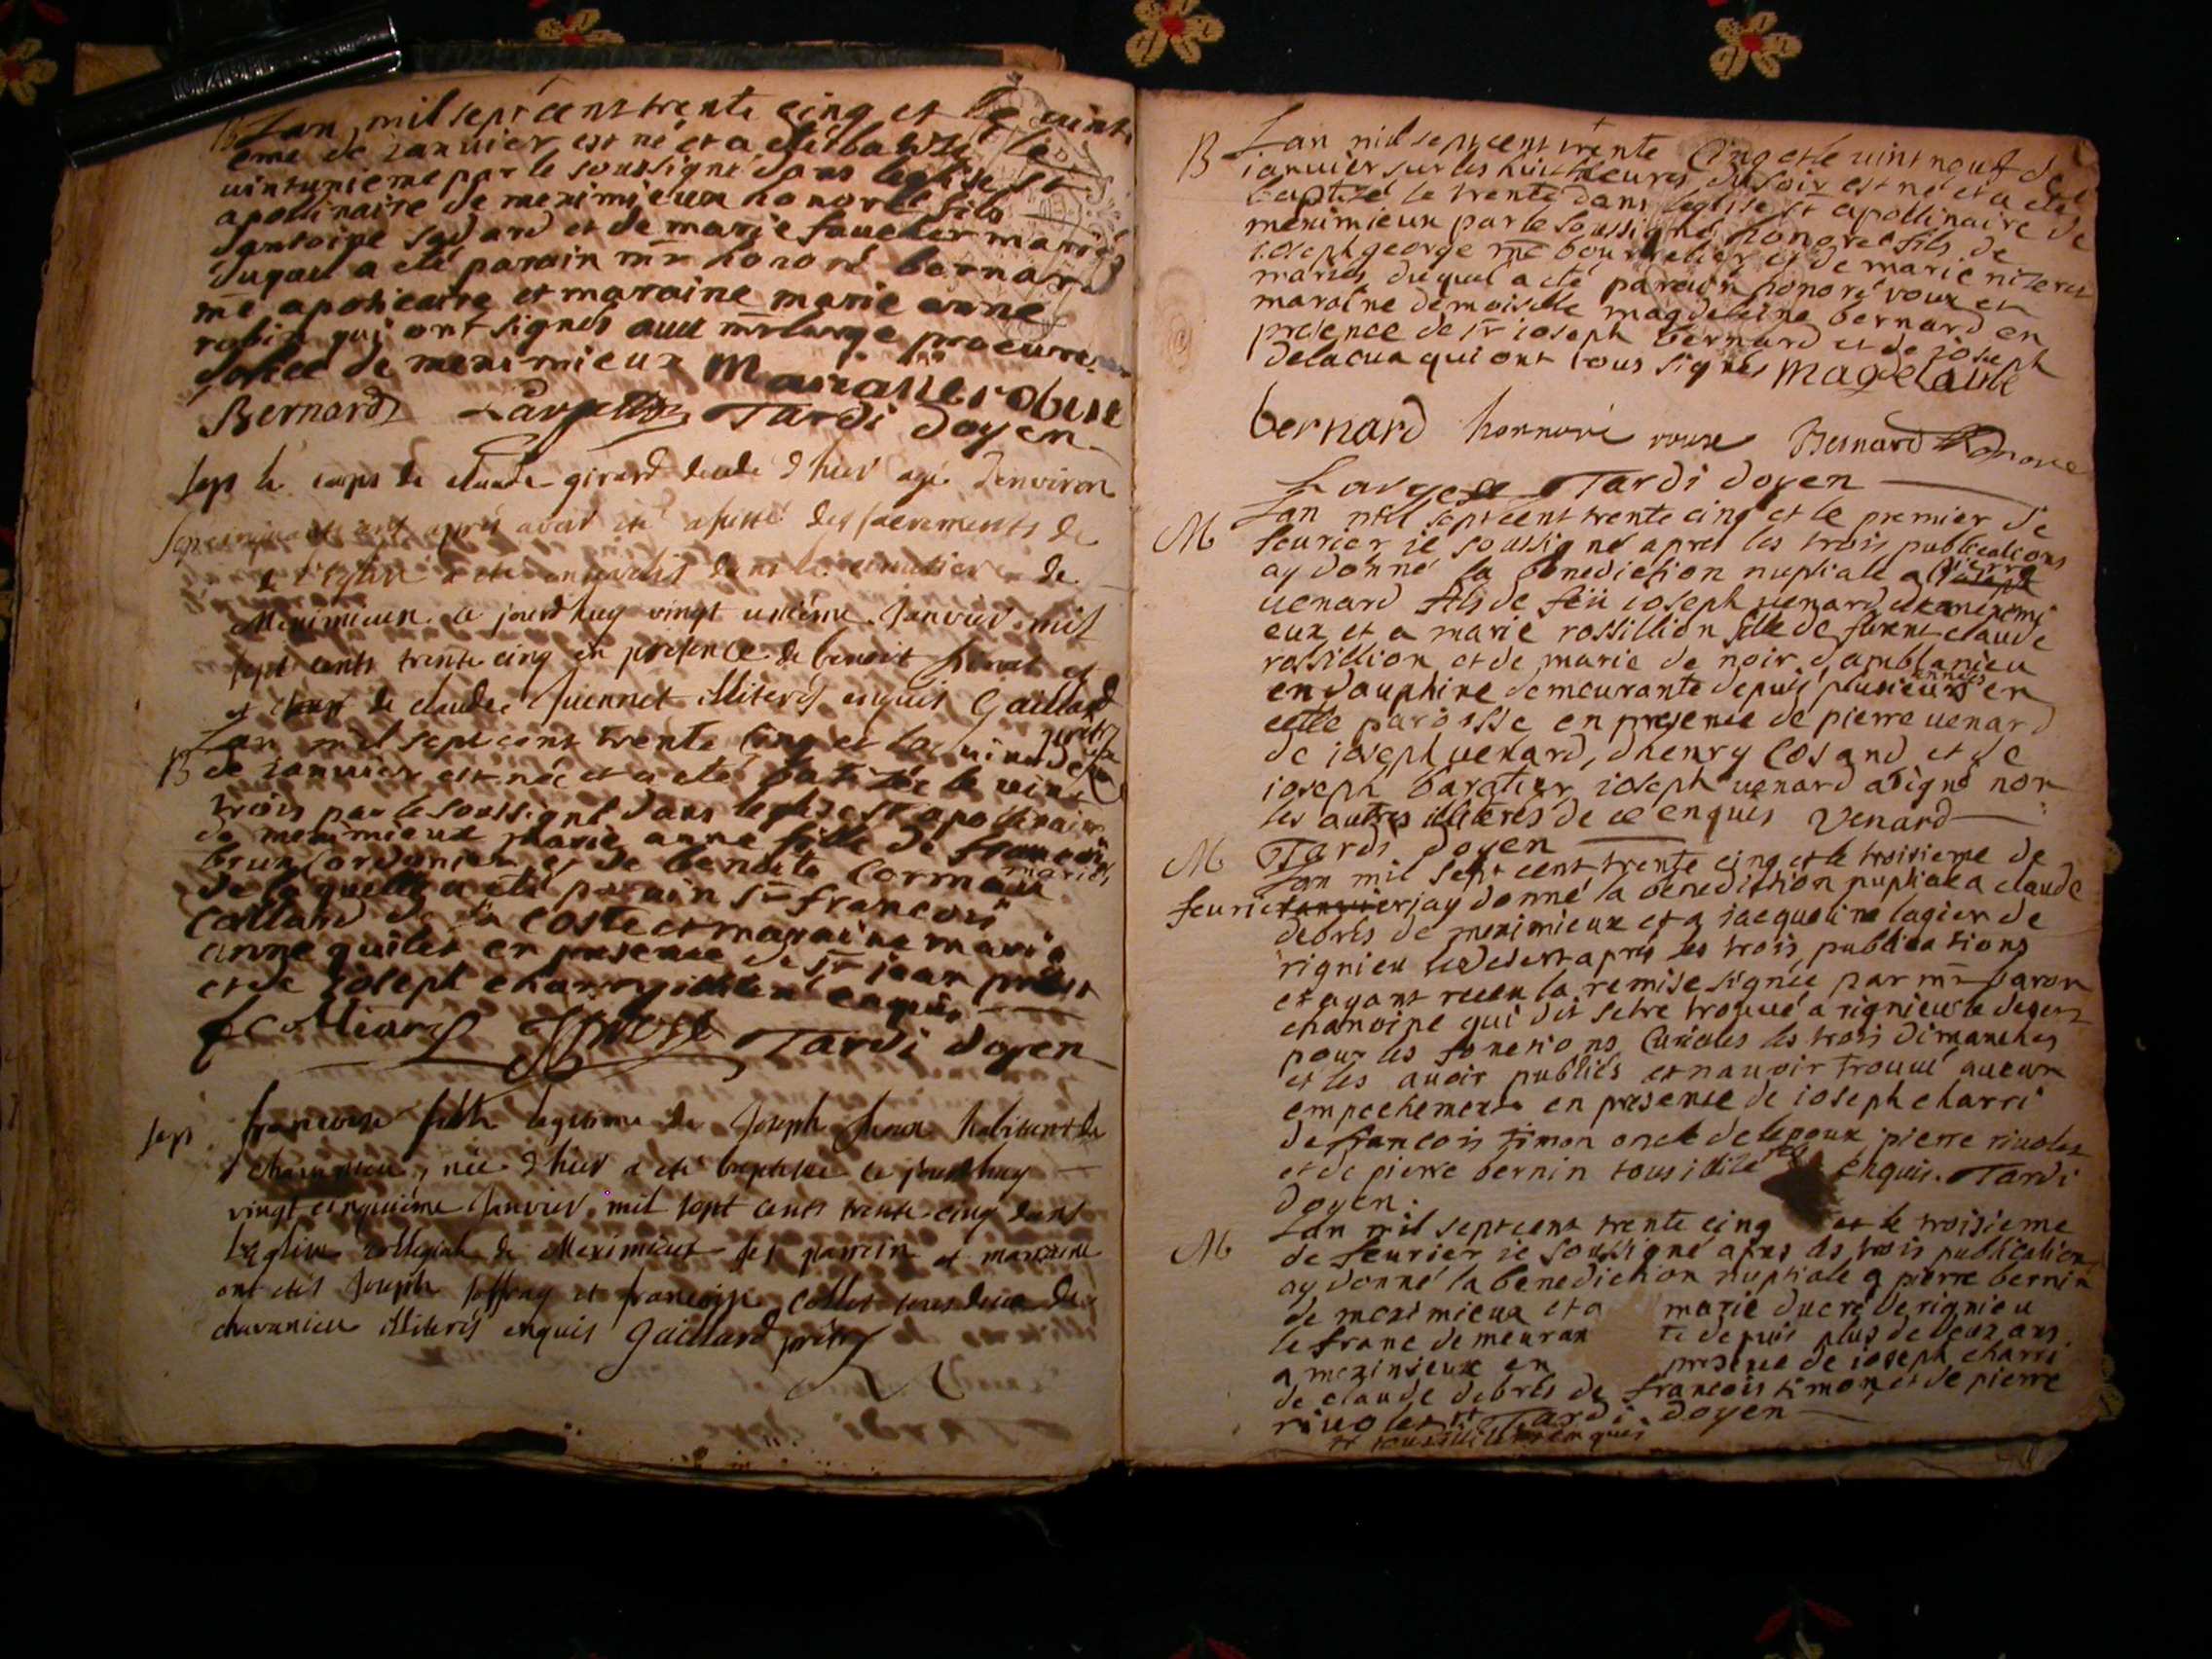 B Lan mil sept cent trente cinq et le vint
eme de ianvier est né et a eté batisé le
vintunieme par le soussigné dans leglise st
apollinaire de meximieux honoré fils
dantoine sadard et de marie faucher mariés
duquel a eté parain mr honoré bernard
me apoticaire et maraine marie anne
robin qui ont signés avec mr large procureur
doffice de meximieux Marianne robin
Bernard Large Tardi doyen
Sep le corps de claude girard decede d'hier agé denviron
ans après avoir eté assisté des sacrements de
l'Eglise a eté enseveli dans le cimetiere de
Meximieux ce jourdhuy vingt unieme Janvier mil
sept cents trente cinq en presence de benoit et
et de claude Juennet illiterés enquis Gaillard
pretre
B Lan mil sept cent trente cinq et le vint deux
de ianvier est née et a eté batisée le vint
trois par le soussigné dans leglise st apollinaire
de meximieux marie anne fille de francois
brun cordonnier et de benoite cormau mariés
de laquelle a eté parain sr francois
collard de la coste et maraine marie
anne quilet en presence de sr jean prost
et de ioseph charry illitere enquis
Prost Tardi doyen
Sep francoise fille legitime de Joseph habitant de
chavanieu, née d'hier a eté baptisée ce jourdhuy
vingt cinquieme Janvier mil sept cents trente cinq dans
l'Eglise collegiale de Meximieux ses parrein et marraine
ont etés Joseph Joffray et francoise Collet tous deux de
chavanieu illiterés enquis Gaillard prêtre
B Lan mil sept cent trente Cinq et le vint neuf de
ianvier sur les huit heures du soir est né et a eté
baptisé le trente dans leglise st apollinaire de
meximieux par le soussigné honoré fils de
ioseph george me bourrelier et de marie nizeret
mariés duquel a eté parain honoré roux et
maraine demoiselle magdeleine bernard en
presence de sr ioseph bernard et de joseph
delacua qui ont tous signés Magdelaine
bernard honnoré roux Bernard
Tardi doyen
M Lan mil sept cent trente cinq et le premier de
feurier ie soussigné apres les trois publications
ay donné la benediction nuptiale a pierre
uenard fils de feu ioseph uenard de meximi
eux et a marie rossillion fille de claude
rossillion et de marie de noir damblanieu
en dauphine demeurante depuis plusieurs années en
cette paroisse en presence de pierre uenard
de ioseph uenard, dhenry Cosand et de
ioseph baratier ioseph uenard a signé non
les autres illiterés de ce enquis Venard
Tardi doyen
M Lan mil sept cent trente cinq et le troisieme de
feurier ianuier jay donné la benediction nuptiale a claude
debrés de meximieux et a iacqueline lagier de
rignieu le desert apres les trois publications
et ayant receu la remise signée par mr baron
chanoine qui dit setre trouué a rignieu le desert
pour les fonctions Curiales les trois dimanches
et les auoir publiés et nauoir trouué aucun
empechements en presence de ioseph charri
de francois timon oncle de lepoux pierre riuolet
et de pierre bernin tous illite enquis. Tardi
Doyen.
M Lan mil sept cent trente cinq et le troisieme
de feurier ie soussigné apres les trois publications
ay donné la benediction nuptiale a pierre bernin
de meximieux et a marie ducré de rignieu
le franc demeuran te depuis plus de deux ans
a meximieux en presence de ioseph charri
de claude debrés de francois timon, et de pierre
riuolet Tardi. doyen
et tous illiterés enquis